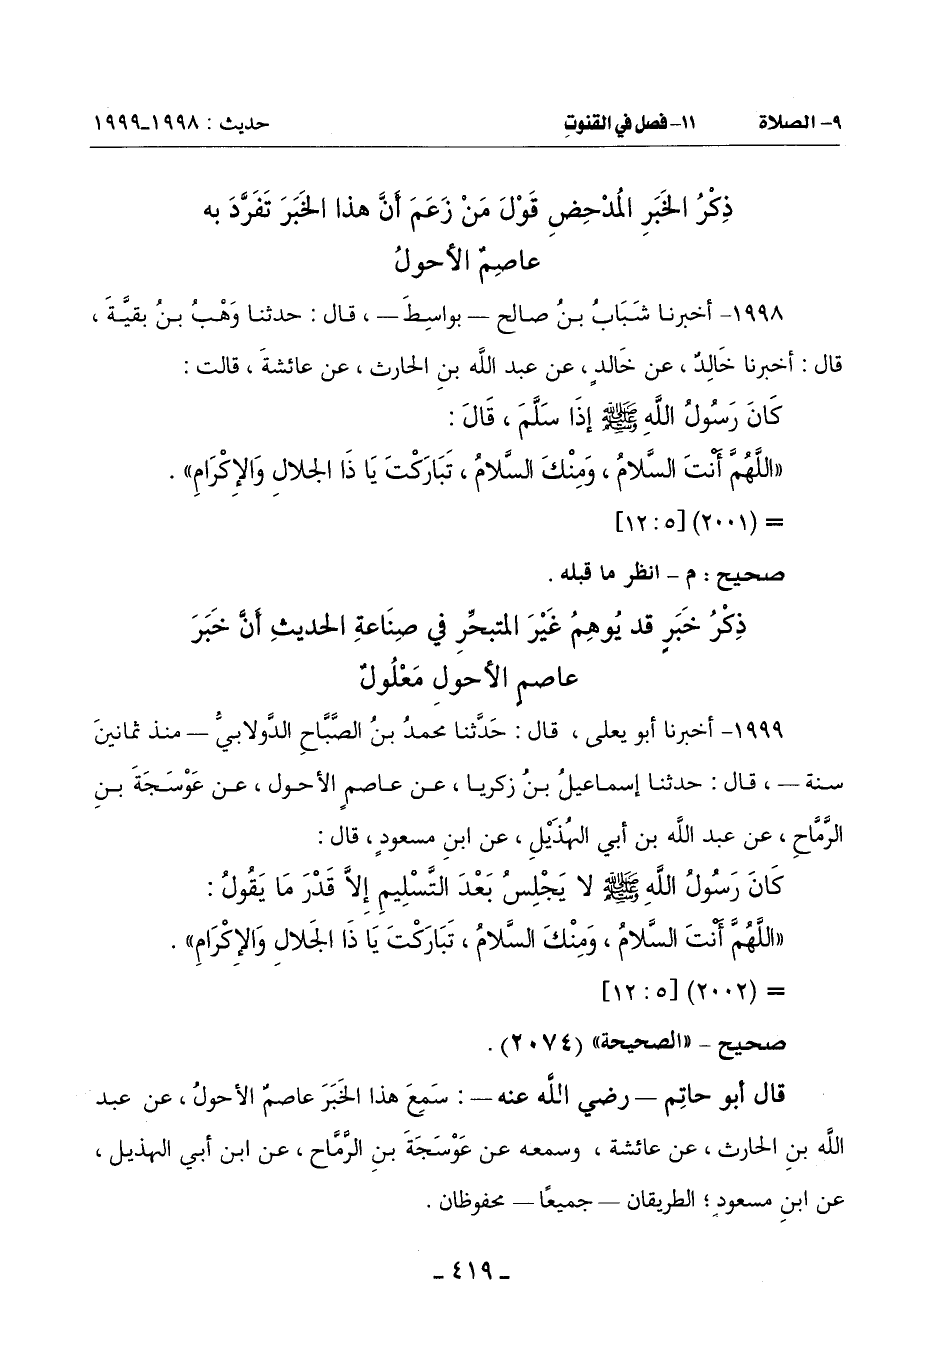 ٩- الصلاة ١١- فصل في القنوتِ حديث : ١٩٩٨-١٩٩٩
ذِكْرُ الخَبَرِ المُدْحِضِ قَوْلَ مَنْ زَعَمَ أَنَّ هذا الخَبَرَ تَفَرَّدَ به
عاصِمٌ الأحولُ
١٩٩٨- أخبرنا شَبَابُ بنُ صالح – بواسِطَ – ، قال : حدثنا وَهْبُ بنُ بقيَّةَ ،
قال : أخبرنا خَالِدٌ ، عن خَالدٍ ، عن عبد اللَّه بنِ الحارث ، عن عائشةَ ، قالت :
كَانَ رَسُولُ اللَّهِ ﷺ إِذَا سَلَّمَ ، قَالَ :
«اللَّهُمَّ أَنْتَ السَّلامُ ، وَمِنْكَ السَّلامُ ، تَبَارَكْتَ يَا ذَا الجَلالِ وَالإِكْرَامِ» .
= (٢٠٠١) [٥ : ١٢]
صحيح : م - انظر ما قبله .
ذِكْرُ خَبَرٍ قد يُوهِمُ غَيْرَ المتبحِّرِ في صِنَاعةِ الحديثِ أَنَّ خَبَرَ
عاصمٍ الأحولِ مَعْلُولٌ
١٩٩٩- أخبرنا أبو يعلى ، قال : حَدَّثنا محمدُ بنُ الصَّبَّاحِ الدَّولابيُّ – منذ ثمانينَ
سنة – ، قال : حدثنا إسماعيلُ بنُ زكريا ، عن عاصمٍ الأحول ، عن عَوْسَجَةَ بنِ
الرَّمَّاحِ ، عن عبد اللَّه بن أبي الهُذَيْلِ ، عن ابنِ مسعودٍ ، قال :
كَانَ رَسُولُ اللَّهِ ﷺ لا يَجْلِسُ بَعْدَ التَّسْلِيمِ إِلاَّ قَدْرَ مَا يَقُولُ :
«اللَّهُمَّ أَنْتَ السَّلامُ ، وَمِنْكَ السَّلامُ ، تَبَارَكْتَ يَا ذَا الجَلالِ وَالإِكْرَامِ» .
= (٢٠٠٢) [٥ : ١٢]
صحيح - «الصحيحة» (٢٠٧٤) .
قال أبو حاتِم – رضي اللَّه عنه – : سَمِعَ هذا الخَبَرَ عاصمٌ الأحولُ ، عن عبد
اللَّه بنِ الحارث ، عن عائشة ، وسمعه عن عَوْسَجَةَ بنِ الرَّمَّاح ، عن ابن أبي الهذيل ،
عن ابنِ مسعودٍ ؛ الطريقان – جميعًا – محفوظان .
- ٤١٩ -